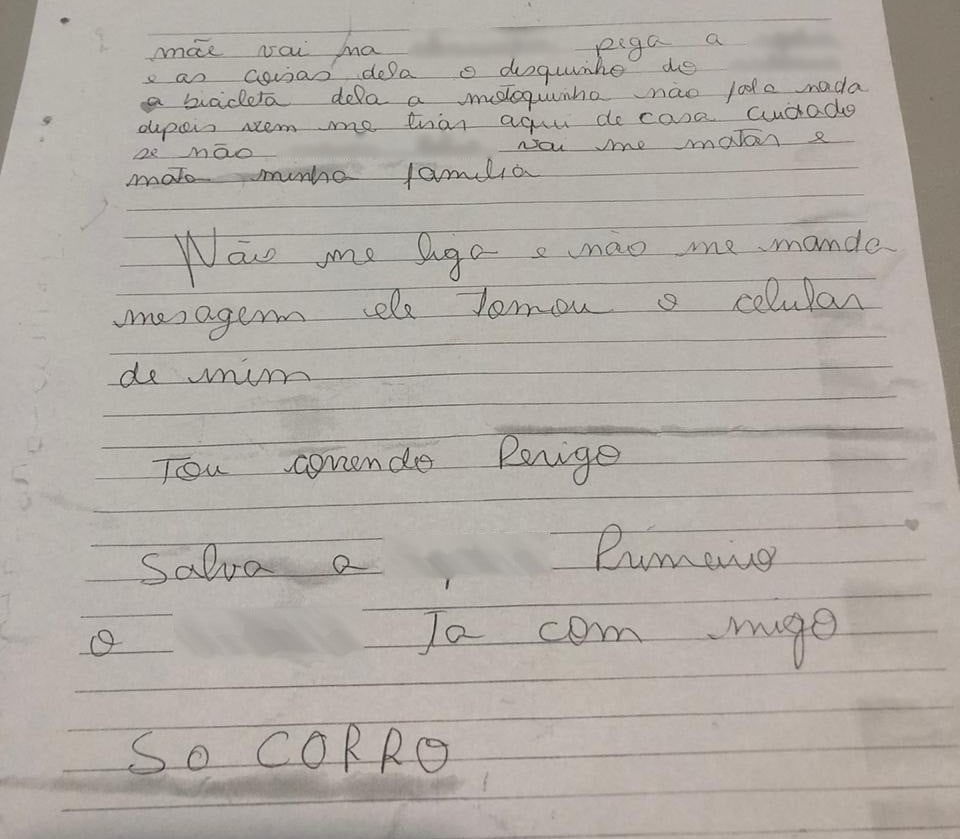 mãe vai na pega a
e as coisas dela o disquinho do
a bicicleta dela a motoquinha não fala nada
depois vem me tirar aqui de casa cuidado
se não vai me matar e
mata minha família
Não me liga e não me manda
mesagem ele tomou o celular
de mim
Tou correndo Perigo
Salva a , Primeiro
o Ta com migo
SO CORRO